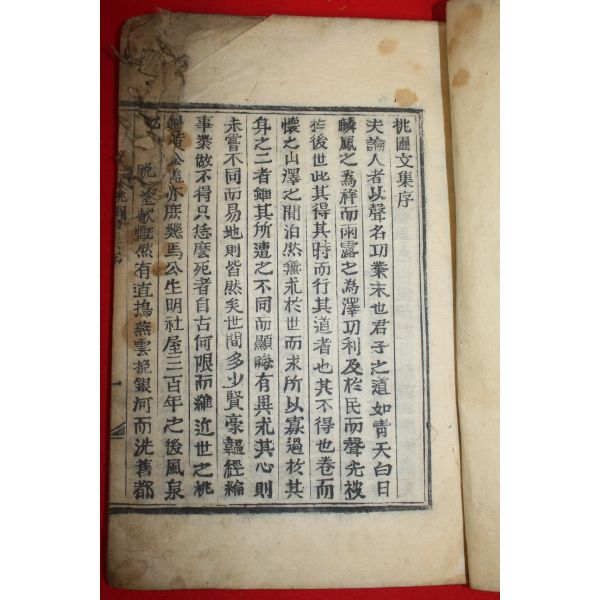 桃圃文集序
夫論人者以聲名功業末也君子之道如靑天白日
麟鳳之為祥而雨露之為澤功利及於民而聲光被
於後世此其得其時而行其道者也其不得也卷而
懷之山澤之間泊然無求於世而求所以寡過於其
身之二者雖其所遭之不同而顯晦有異求其心則
未嘗不同而易地則皆然矣世間多少賢豪韞經綸
事業做不得只恁麼死者自古何限而雖近世之桃
亦庶幾焉公生明社屋三百年之後風泉
晩 歌慨然有直搗燕雲挽銀河而洗舊都